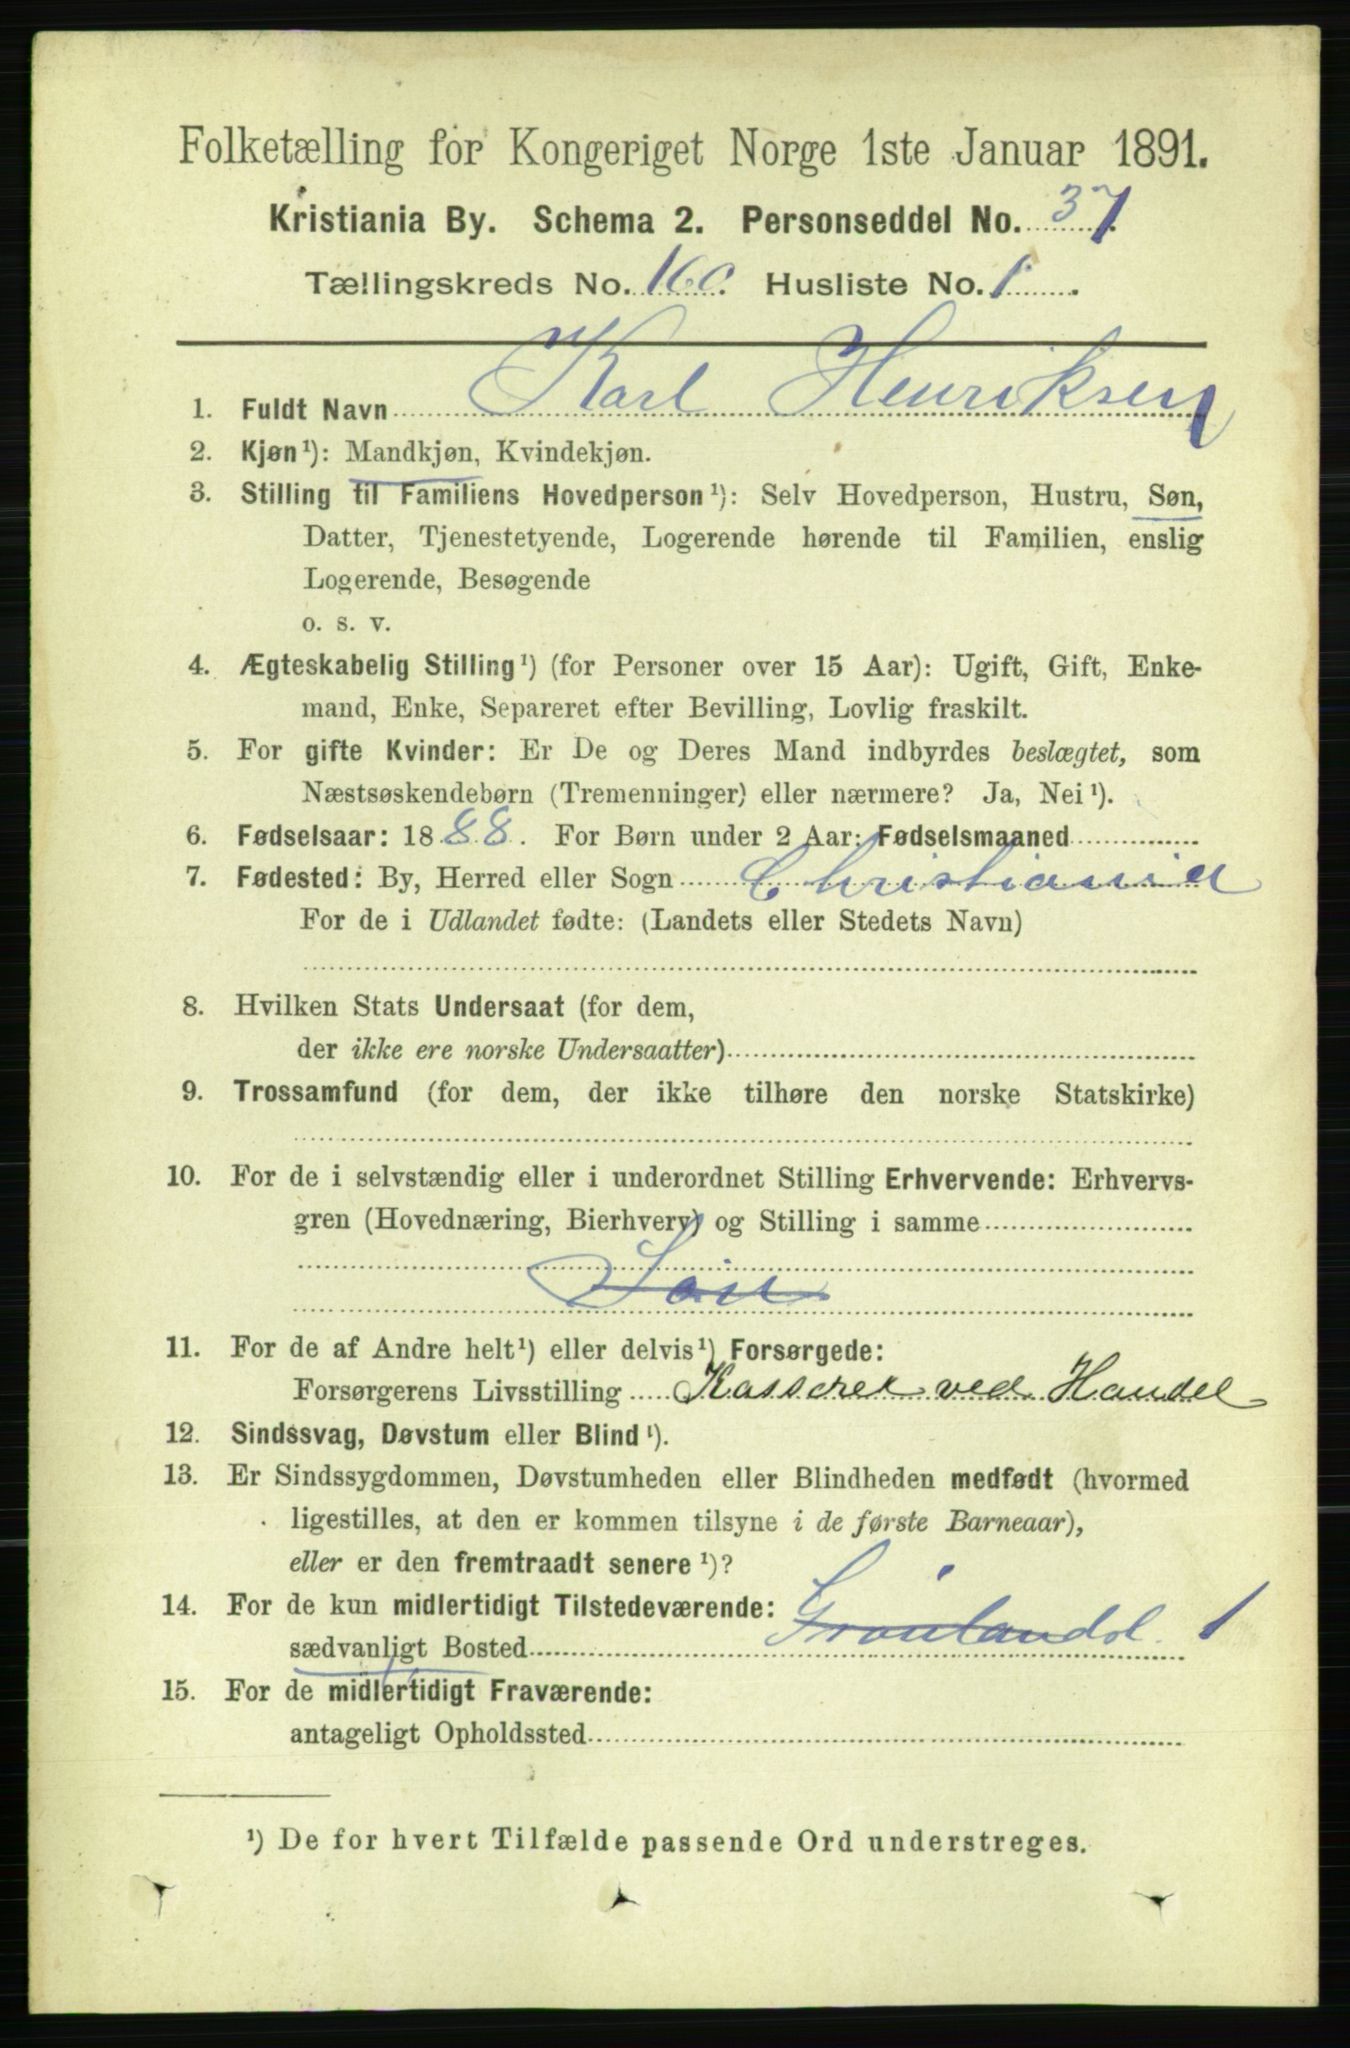 Folketælling for Kongeriget Norge 1ste Januar 1891.
Kristiania By. Schema 2. Personseddel No. 37.
Tællingskreds No. 160. Husliste No. 1.
1. Fuldt Navn Karl Henriksen
2. Kjøn¹): Mandkjøn, Kvindekjøn.
3. Stilling til Familiens Hovedperson¹): Selv Hovedperson, Hustru, Søn,
Datter, Tjenestetyende, Logerende hørende til Familien, enslig
Logerende, Besøgende
o. s. v.
4. Ægteskabelig Stilling¹) (for Personer over 15 Aar): Ugift, Gift, Enke-
mand, Enke, Separeret efter Bevilling, Lovlig fraskilt.
5. For gifte Kvinder: Er De og Deres Mand indbyrdes beslægtet, som
Næstsøskendebørn (Tremenninger) eller nærmere? Ja, Nei¹).
6. Fødselsaar: 1888. For Børn under 2 Aar: Fødselsmaaned
7. Fødested: By, Herred eller Sogn Christiania
For de i Udlandet fødte: (Landets eller Stedets Navn)
8. Hvilken Stats Undersaat (for dem,
der ikke ere norske Undersaatter)
9. Trossamfund (for dem, der ikke tilhøre den norske Statskirke)
10. For de i selvstændig eller i underordnet Stilling Erhvervende: Erhvervs-
gren (Hovednæring, Bierhverv) og Stilling i samme
Søn
11. For de af Andre helt¹) eller delvis¹) Forsørgede:
Forsørgerens Livsstilling Kasserer ved Handel
12. Sindssvag, Døvstum eller Blind¹).
13. Er Sindssygdommen, Døvstumheden eller Blindheden medfødt (hvormed
ligestilles, at den er kommen tilsyne i de første Barneaar),
eller er den fremtraadt senere¹)?
14. For de kun midlertidigt Tilstedeværende:
sædvanligt Bosted Grønlandsl. 1
15. For de midlertidigt Fraværende:
antageligt Opholdssted
¹) De for hvert Tilfælde passende Ord understreges.